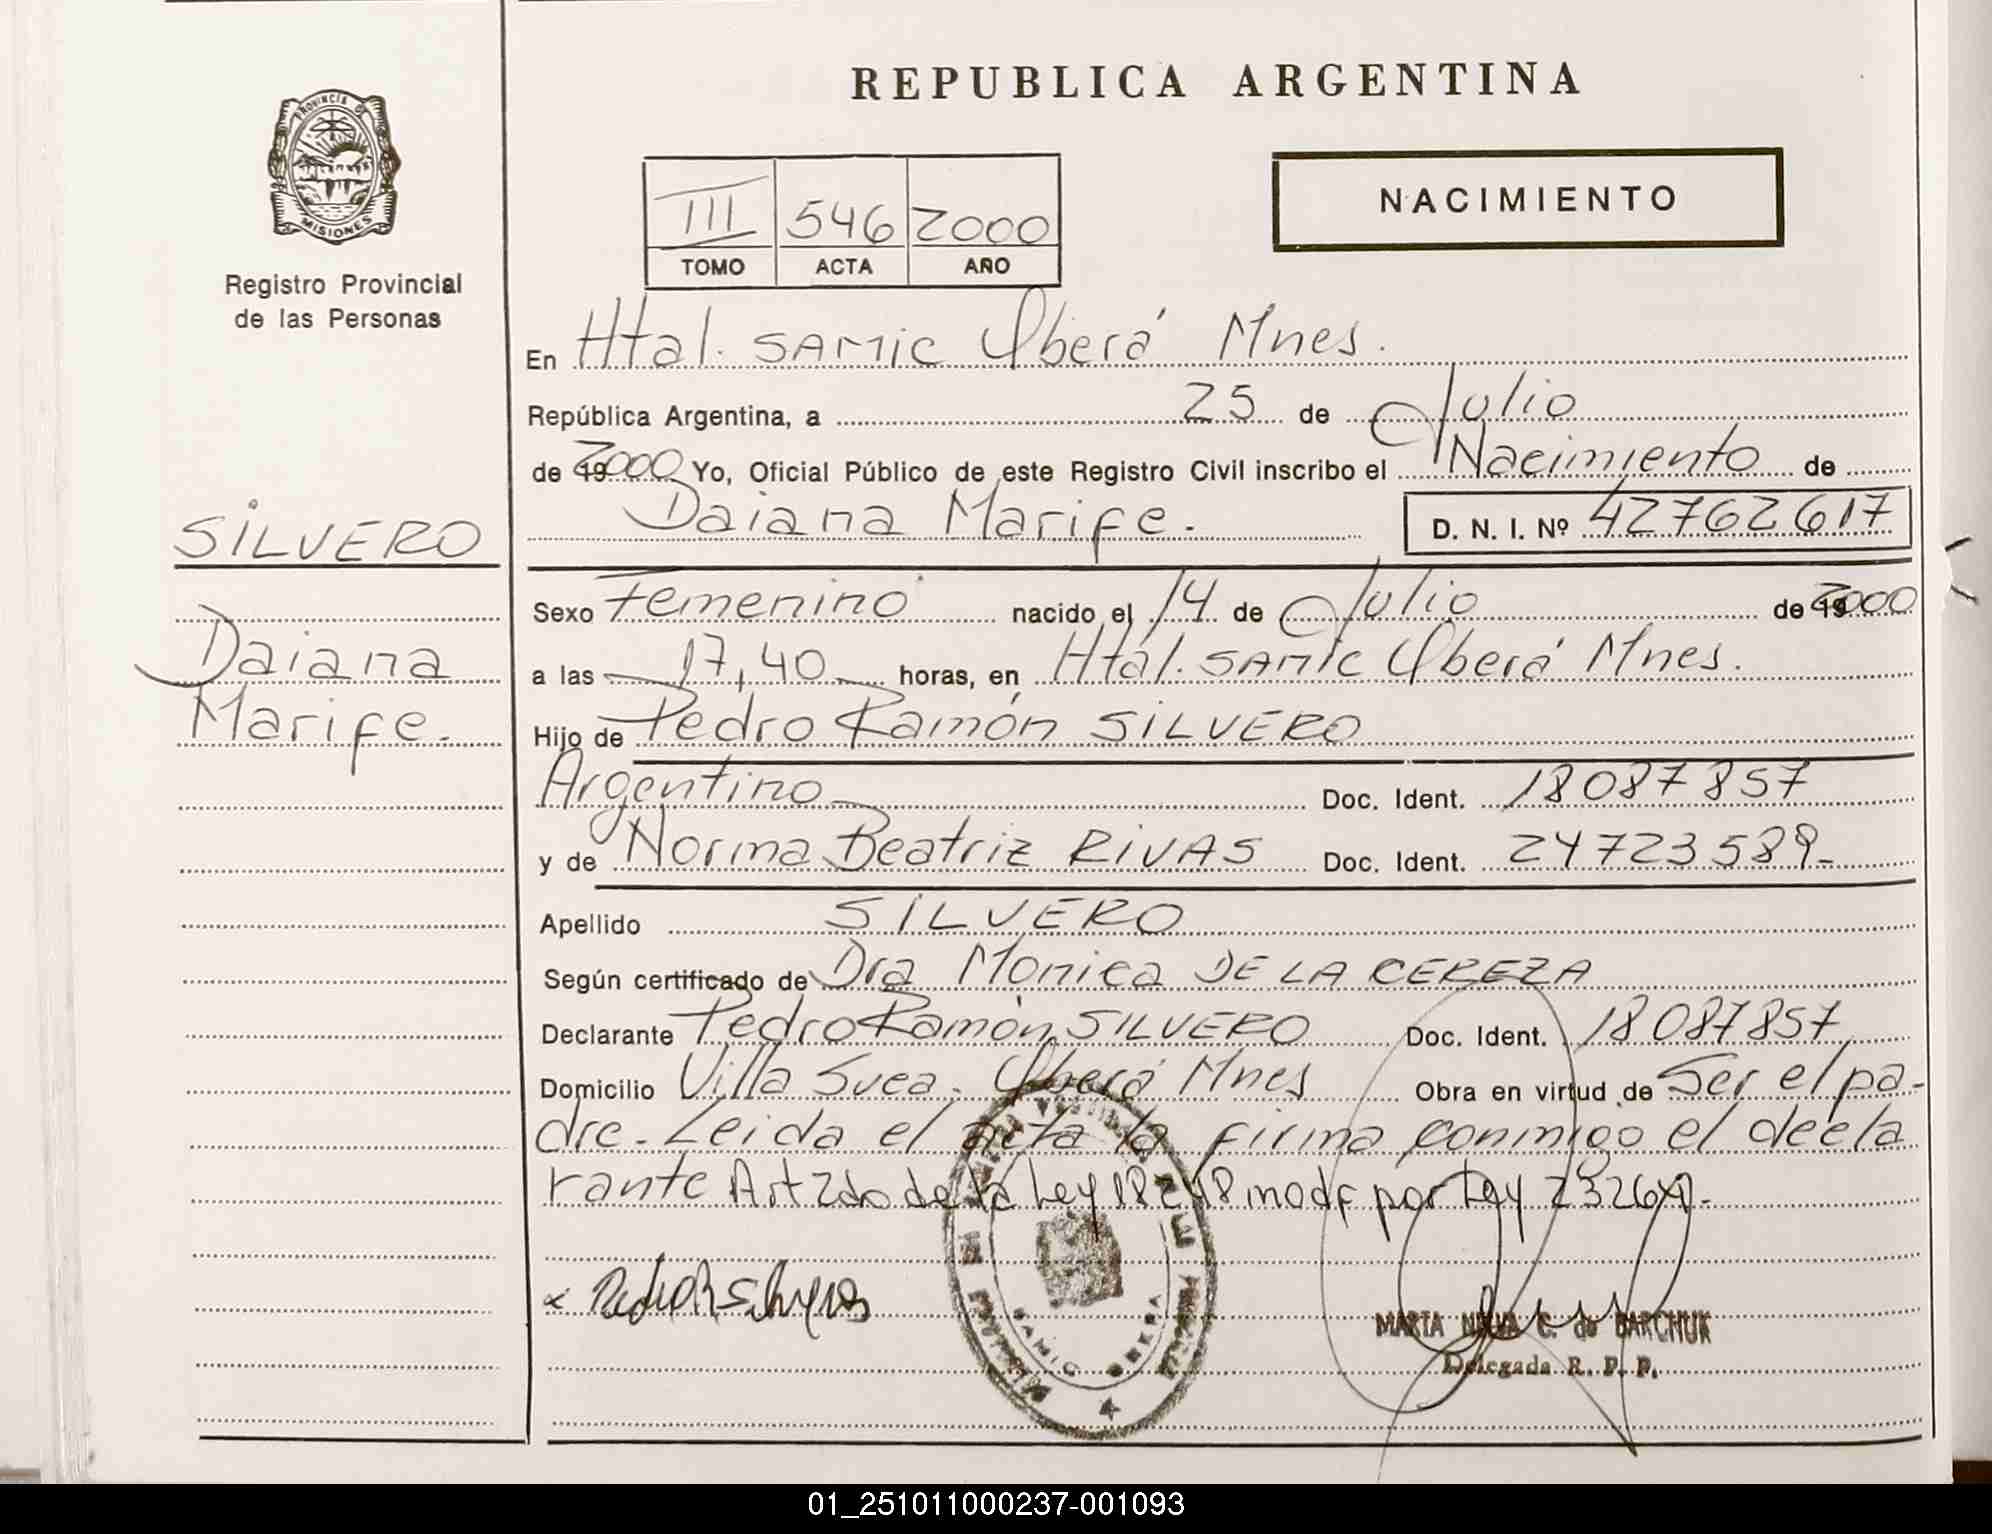 REPUBLICA ARGENTINA
PROVINCIA DE
MISIONES
Registro Provincial
de las Personas
III 546 2000
TOMO ACTA AÑO
NACIMIENTO
En Htal. SAMIC Oberá Mnes.
República Argentina, a 25 de Julio
de 2000 Yo, Oficial Público de este Registro Civil inscribo el Nacimiento de
Daiana Marife. D. N. I. Nº 42762617
SILVERO
Daiana
Marife.
Sexo Femenino nacido el 14 de Julio de 2000
a las 17,40 horas, en Htal. SAMIC Oberá Mnes.
Hijo de Pedro Ramón SILVERO
Argentino Doc. Ident. 18087857
y de Norma Beatriz RIVAS Doc. Ident. 24723589-
Apellido SILVERO
Según certificado de Dra Mónica DE LA CEREZA
Declarante Pedro Ramón SILVERO Doc. Ident. 18087857
Domicilio Villa Svea. Oberá Mnes Obra en virtud de Ser el pa-
dre. Leida el acta la firma conmigo el decla
rante Art 2do de la Ley 18248 modf por Ley 23264
SAMIC OBERA
MARTA C. de BARCHUK
Delegada R. P. P.
01_251011000237-001093